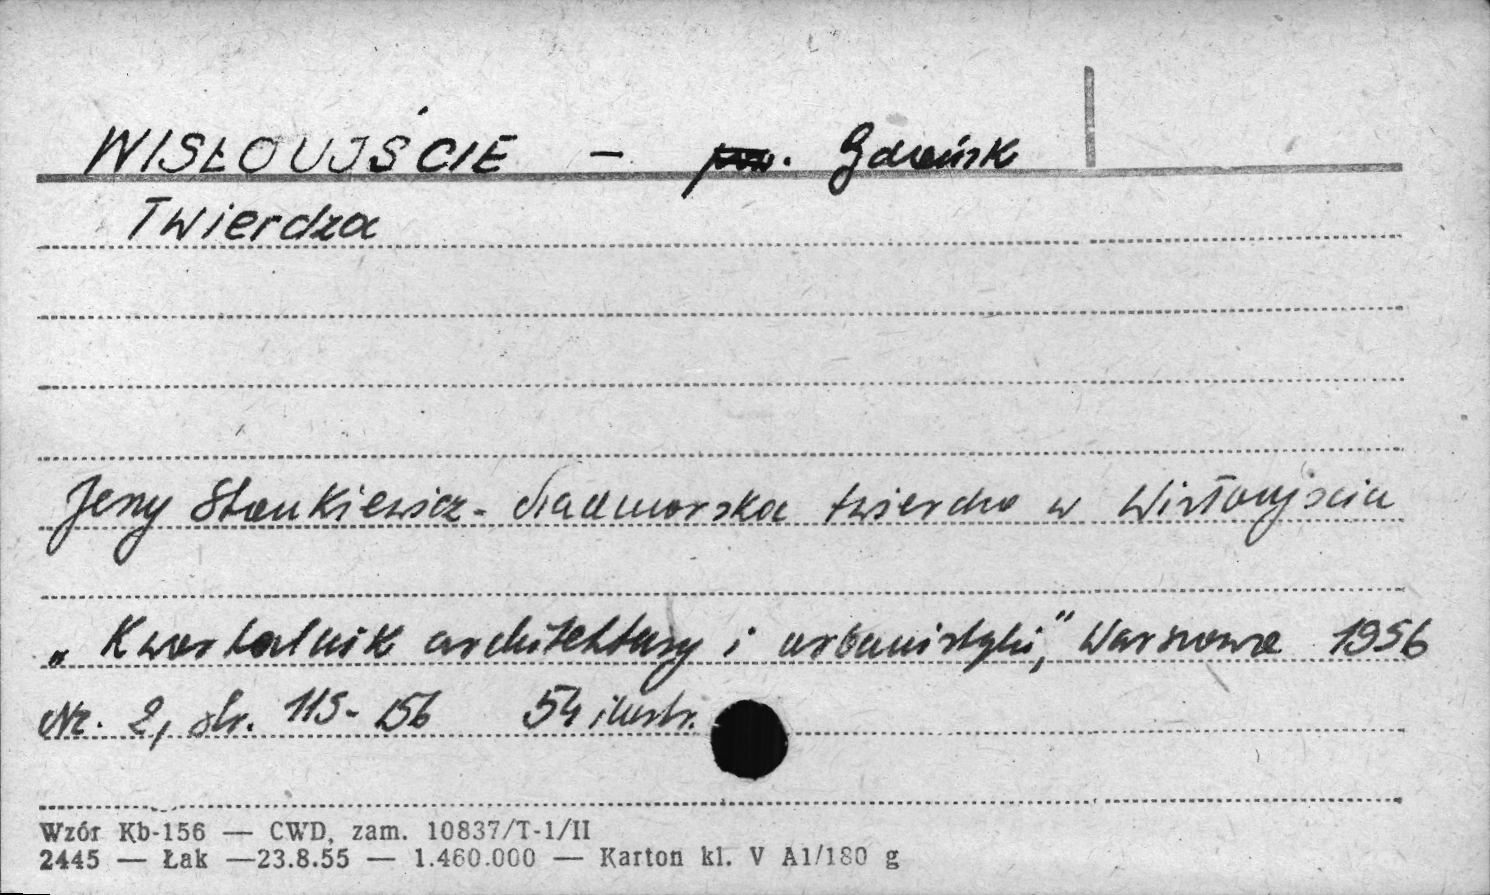 WISŁOUJŚCIE — pow. Gdańsk
Twierdza
Jerzy Stankiewicz - Nadmorska twierdza w Wisłoujściu
„Kwartalnik architektury i urbanistyki," Warszawa 1956
Nr. 2, str. 115-156 54 ilustr.
Wzór Kb-156 — CWD, zam. 10837/T-1/II
2445 — Łak —23.8.55 — 1.460.000 — Karton kl. V A1/180 g